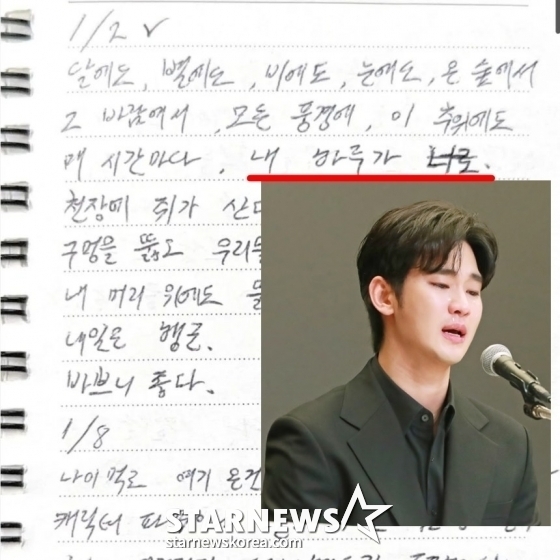 1/2 ✓
달에도, 별에도, 비에도, 눈에도, 온 숲에서
그 바람에서, 모든 풍경에, 이 추위에도
매 시간마다, 내 하루가 너로.
천장에 쥐가 산다
구멍을 뚫도 우리들
내 머리 위에도
내일은 행군.
바쁘니 좋다.
1/8
나이 먹고 여기 온건
캐릭터
STARNEWS
starnewskorea.com